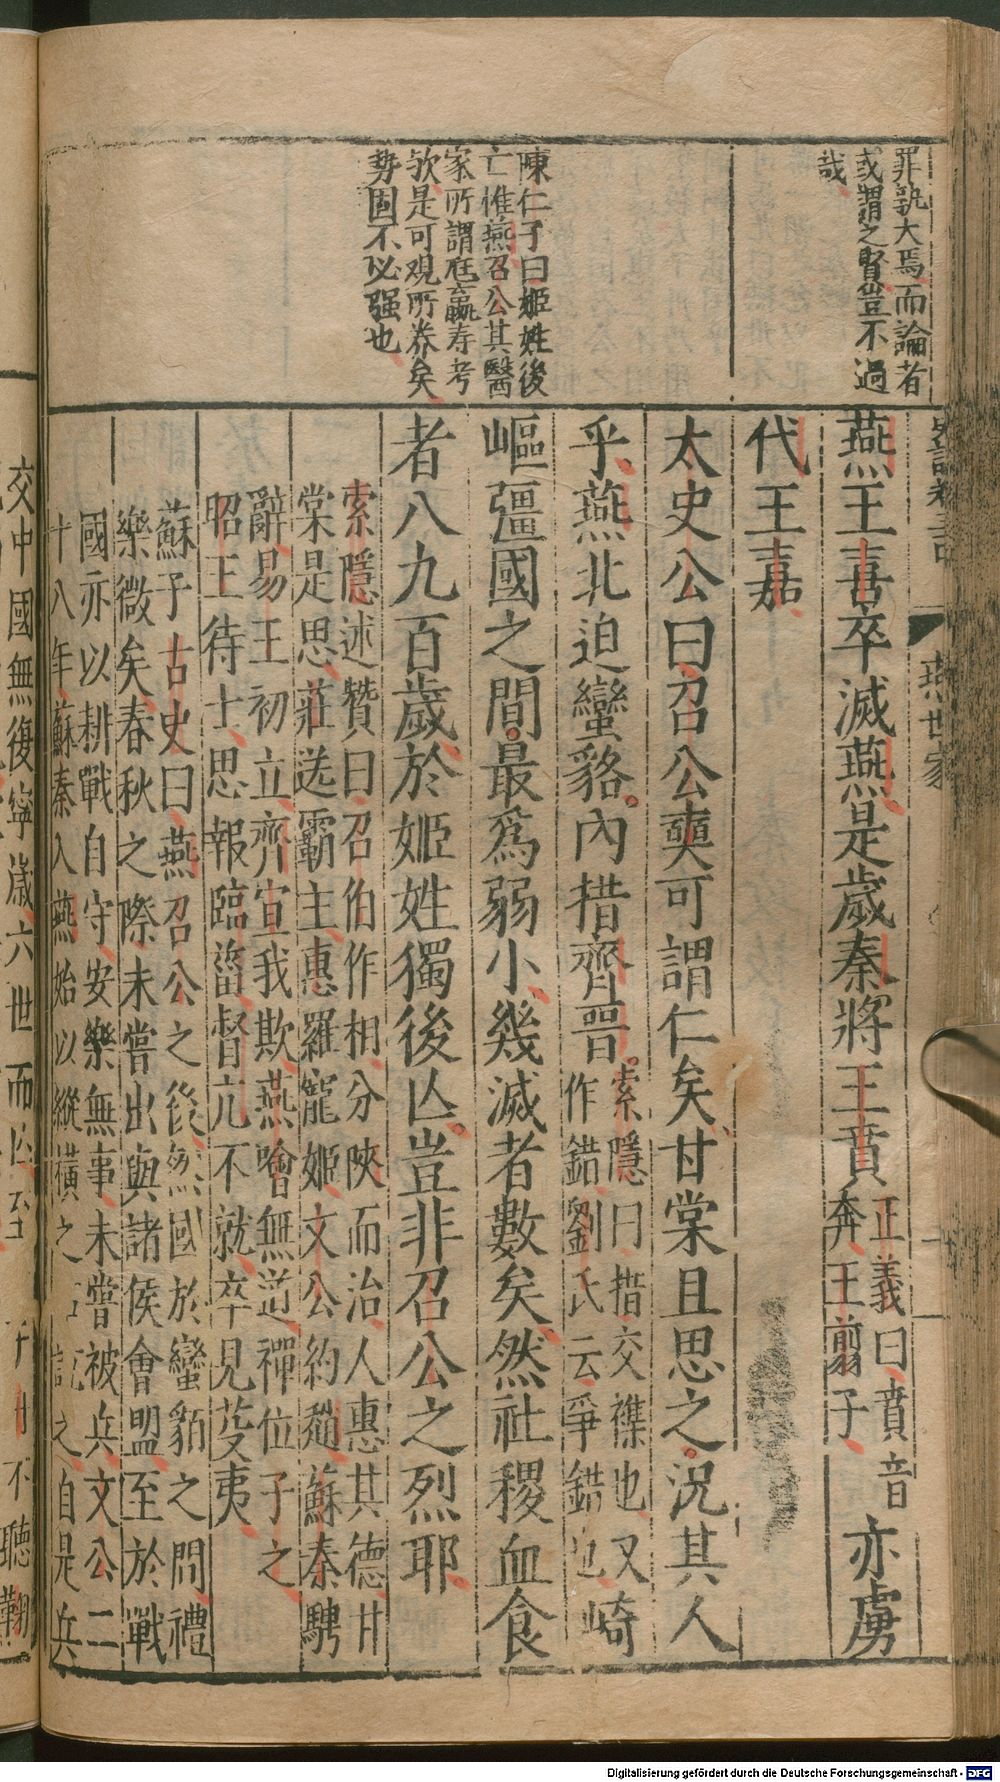 罪孰大焉而論者
或謂之賢豈不過
哉
陳仁子曰姬姓後
亡惟燕召公其醫
家所謂尫羸寿考
欤是可观所养矣
势固不必强也
燕世家
燕王喜卒滅燕是歲秦將王賁
正義曰賁音
奔王翦子
亦虜
代王嘉
太史公曰召公奭可謂仁矣甘棠且思之況其人
乎燕北迫蠻貉內措齊晉
索隱曰措交襍也又
作錯劉氏云爭錯也
崎
嶇彊國之間最爲弱小幾滅者數矣然社稷血食
者八九百歲於姬姓獨後亾豈非召公之烈耶
索隱述贊曰召伯作相分陝而治人惠其德甘
棠是思莊送霸主惠羅寵姬文公約趙蘇秦騁
辭易王初立齊宣我欺燕噲無道禪位子之
昭王待士思報臨淄督亢不就卒見芟夷
蘇子古史曰燕召公之後然國於蠻貊之間禮
樂微矣春秋之際未嘗出與諸侯會盟至於戰
國亦以耕戰自守安樂無事未嘗被兵文公二
十八年蘇秦入燕始以縱橫之說之自是兵
交中國無復寧歲六世而亾至
不聽鞠
Digitalisierung gefördert durch die Deutsche Forschungsgemeinschaft - DFG